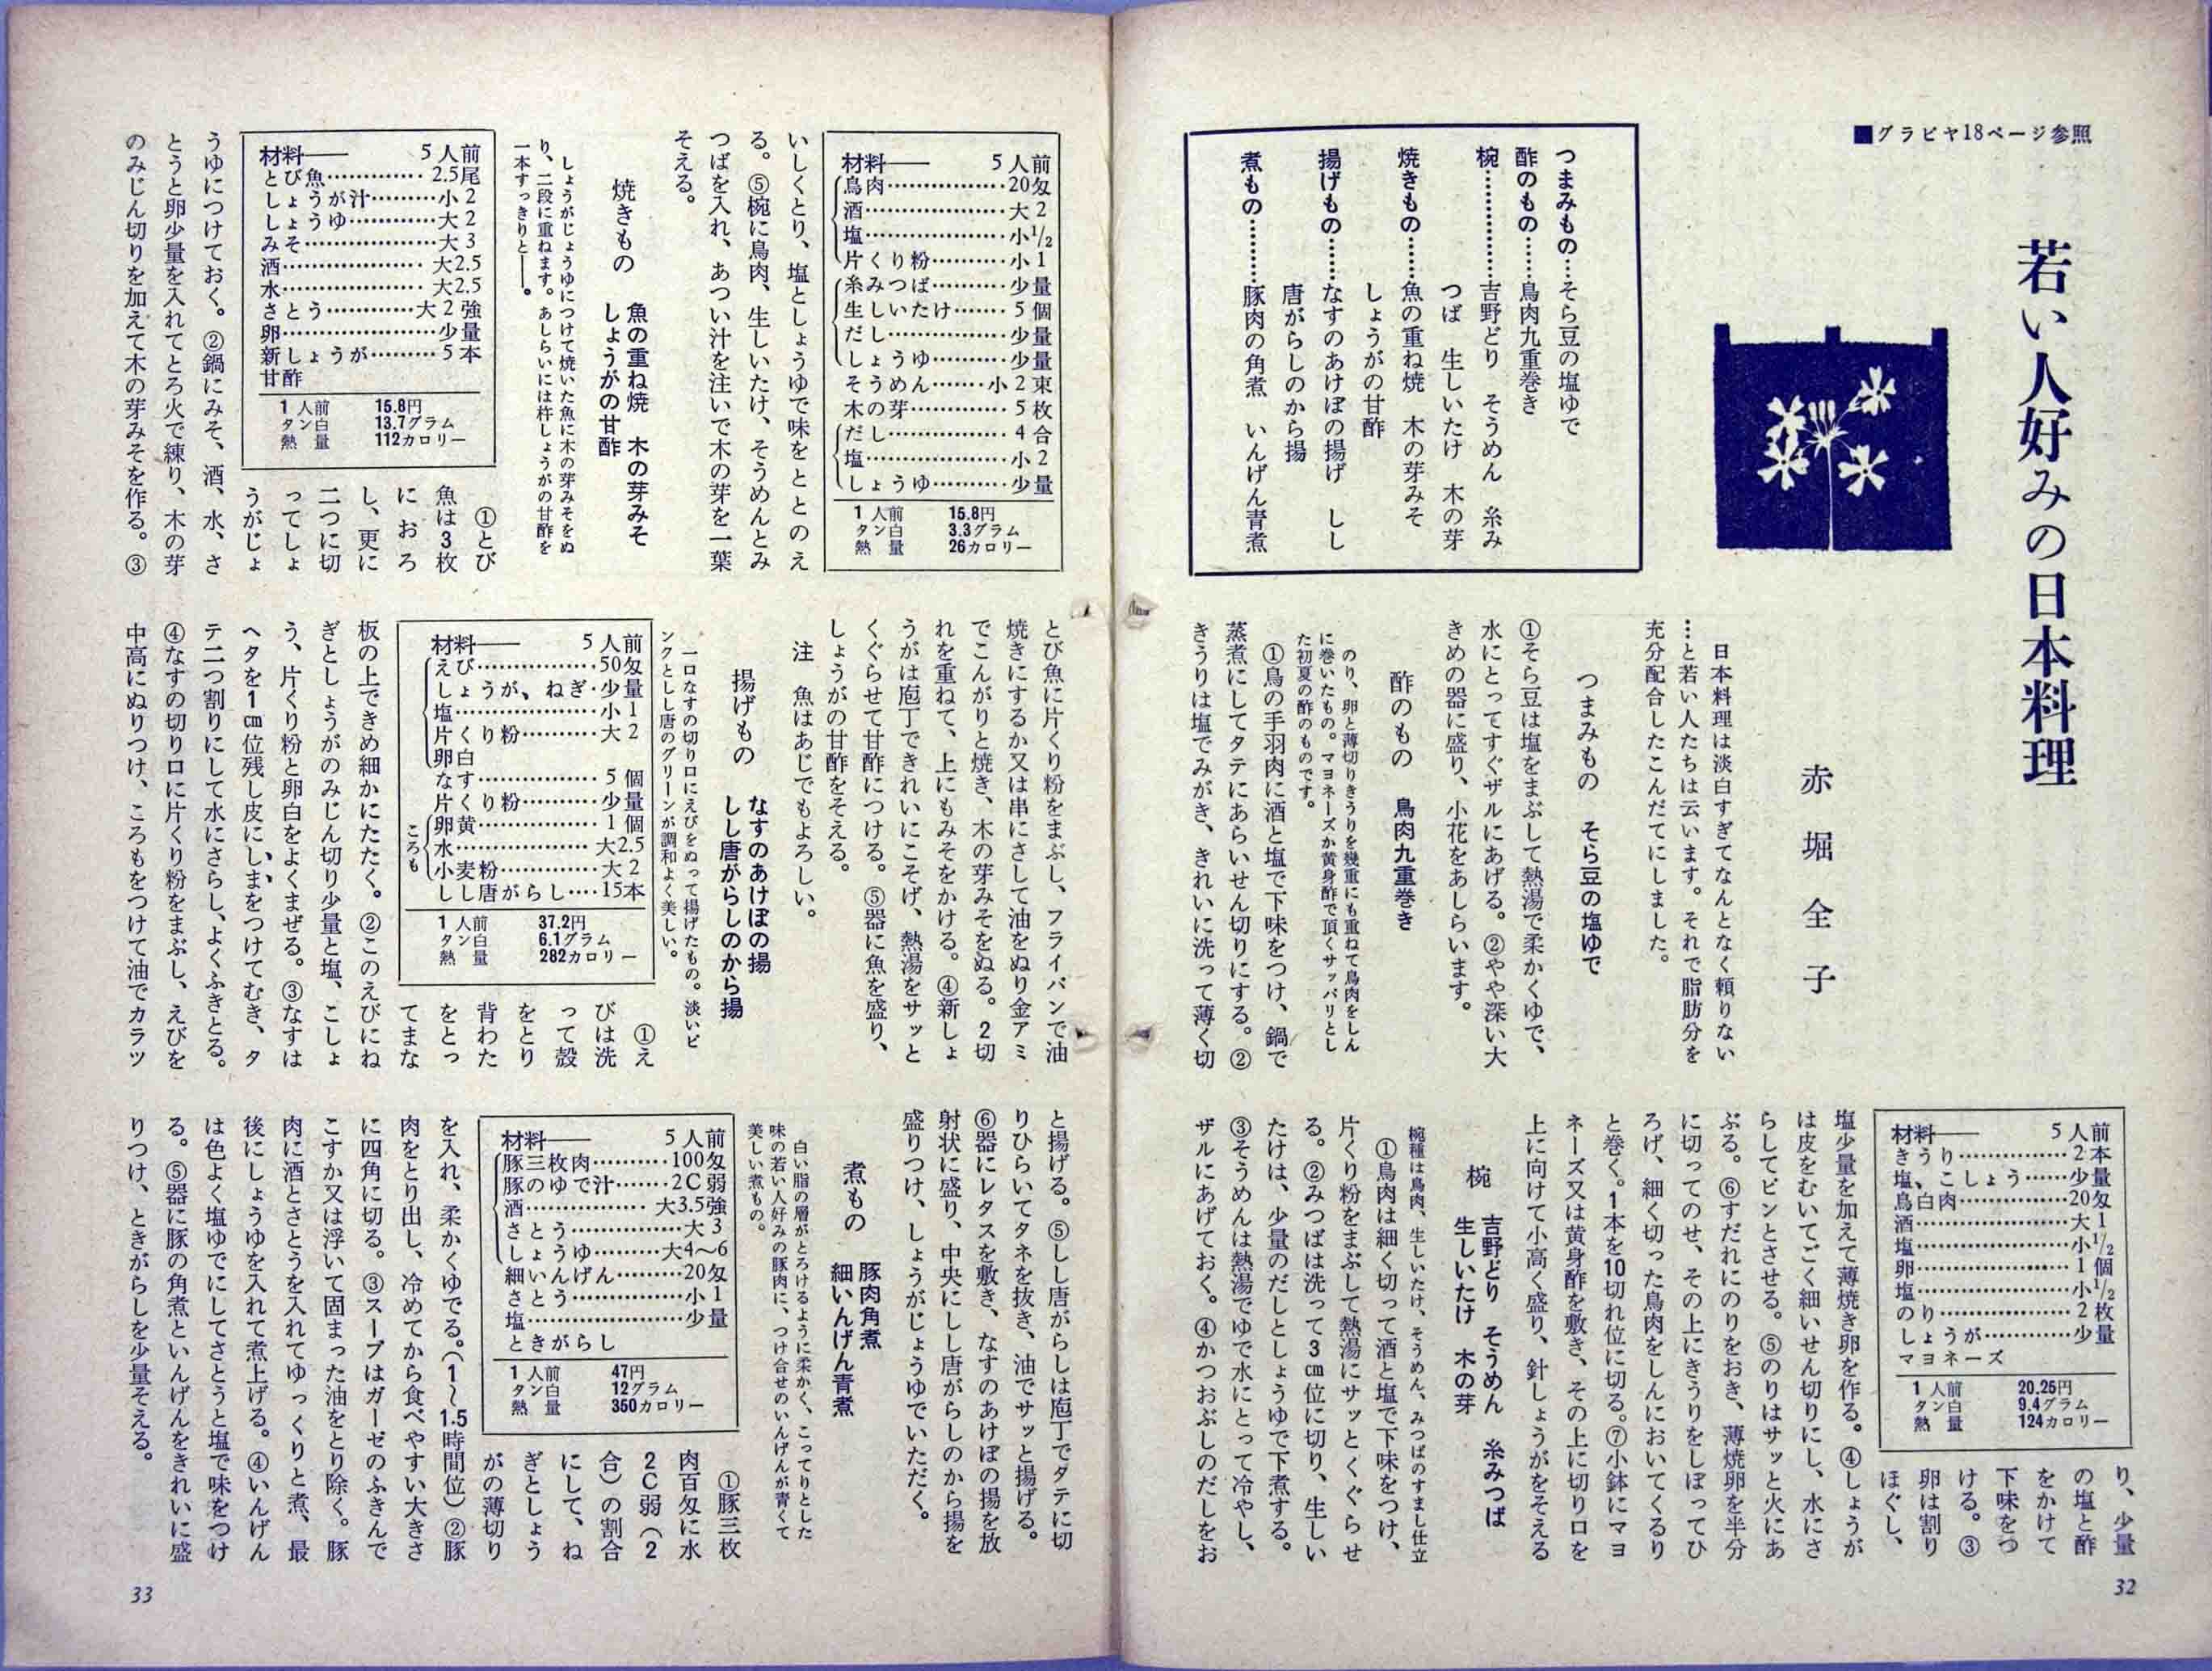 ■グラビヤ18ページ参照
若い人好みの日本料理
赤堀全子
つまみもの…そら豆の塩ゆで
酢のもの……鳥肉九重巻き
椀……………吉野どり　そうめん　糸み
つば　生しいたけ　木の芽
焼きもの……魚の重ね焼　木の芽みそ
しょうがの甘酢
揚げもの……なすのあけぼの揚げ　しし
唐がらしのから揚
煮もの………豚肉の角煮　いんげん青煮
日本料理は淡白すぎてなんとなく頼りない
…と若い人たちは云います。それで脂肪分を
充分配合したこんだてにしました。
つまみもの　そら豆の塩ゆで
①そら豆は塩をまぶして熱湯で柔かくゆで、
水にとってすぐザルにあげる。②やや深い大
きめの器に盛り、小花をあしらいます。
酢のもの　鳥肉九重巻き
のり、卵と薄切りきうりを幾重にも重ねて鳥肉をしん
に巻いたもの。マヨネーズか黄身酢で頂くサッパリとし
た初夏の酢のものです。
①鳥の手羽肉に酒と塩で下味をつけ、鍋で
蒸煮にしてタテにあらいせん切りにする。②
きうりは塩でみがき、きれいに洗って薄く切
材料――　5人前
きうり……………2本
塩、こしょう……少量
鳥白肉……………20匁
酒…………………大1
塩…………………小1/2
卵…………………1個
塩…………………小1/2
のり………………2枚
しょうが…………少量
マヨネーズ
1人前　20.25円
タン白　9.4グラム
熱量　124カロリー
り、少量
の塩と酢
をかけて
下味をつ
ける。③
卵は割り
ほぐし、
塩少量を加えて薄焼き卵を作る。④しょうが
は皮をむいてごく細いせん切りにし、水にさ
らしてピンとさせる。⑤のりはサッと火にあ
ぶる。⑥すだれにのりをおき、薄焼卵を半分
に切ってのせ、その上にきうりをしぼってひ
ろげ、細く切った鳥肉をしんにおいてくるり
と巻く。1本を10切れ位に切る。⑦小鉢にマヨ
ネーズ又は黄身酢を敷き、その上に切り口を
上に向けて小高く盛り、針しょうがをそえる
椀　吉野どり　そうめん　糸みつば
生しいたけ　木の芽
椀種は鳥肉、生しいたけ、そうめん、みつばのすまし仕立
①鳥肉は細く切って酒と塩で下味をつけ、
片くり粉をまぶして熱湯にサッとくぐらせ
る。②みつばは洗って3cm位に切り、生しい
たけは、少量のだしとしょうゆで下煮する。
③そうめんは熱湯でゆで水にとって冷やし、
ザルにあげておく。④かつおぶしのだしをお
32
材料――　5人前
鳥肉………………20匁
酒…………………大2
塩…………………小1/2
片くり粉…………小1
糸みつば…………少量
生しいたけ………5個
だし………………少量
しょうゆ…………少量
そうめん………小2束
木の芽……………5枚
だし………………4合
塩…………………小2
しょうゆ…………少量
1人前　15.8円
タン白　3.3グラム
熱量　26カロリー
いしくとり、塩としょうゆで味をととのえ
る。⑤椀に鳥肉、生しいたけ、そうめんとみ
つばを入れ、あつい汁を注いで木の芽を一葉
そえる。
焼きもの　魚の重ね焼　木の芽みそ
しょうがの甘酢
しょうがじょうゆにつけて焼いた魚に木の芽みそをぬ
り、二段に重ねます。あしらいには杵しょうがの甘酢を
一本すっきりと――。
材料――　5人前
とび魚……………2.5尾
しょうが汁………小2
しょうゆ…………大2
みそ………………大3
酒…………………大2.5
水…………………大2.5
さとう…………大2強
卵…………………少量
新しょうが………5本
甘酢
1人前　15.8円
タン白　13.7グラム
熱量　112カロリー
①とび
魚は3枚
におろ
し、更に
二つに切
ってしょ
うがじょ
うゆにつけておく。②鍋にみそ、酒、水、さ
とうと卵少量を入れてとろ火で練り、木の芽
のみじん切りを加えて木の芽みそを作る。③
とび魚に片くり粉をまぶし、フライパンで油
焼きにするか又は串にさして油をぬり金アミ
でこんがりと焼き、木の芽みそをぬる。2切
れを重ねて、上にもみそをかける。④新しょ
うがは庖丁できれいにこそげ、熱湯をサッと
くぐらせて甘酢につける。⑤器に魚を盛り、
しょうがの甘酢をそえる。
注　魚はあじでもよろしい。
揚げもの　なすのあけぼの揚
しし唐がらしのから揚
一口なすの切り口にえびをぬって揚げたもの。淡いピ
ンクとしし唐のグリーンが調和よく美しい。
材料――　5人前
えび………………50匁
しょうが、ねぎ…少量
塩…………………小1
片くり粉…………大2
卵白
なす………………5個
片くり粉…………少量
ころも
卵黄………………1個
水…………………大2.5
小麦粉……………大2
しし唐がらし……15本
1人前　37.2円
タン白　6.1グラム
熱量　282カロリー
①え
びは洗
って殻
をとり
背わた
をとっ
てまな
板の上できめ細かにたたく。②このえびにね
ぎとしょうがのみじん切り少量と塩、こしょ
う、片くり粉と卵白をよくまぜる。③なすは
ヘタを1cm位残し皮にしまをつけてむき、タ
テ二つ割りにして水にさらし、よくふきとる。
④なすの切り口に片くり粉をまぶし、えびを
中高にぬりつけ、ころもをつけて油でカラッ
と揚げる。⑤しし唐がらしは庖丁でタテに切
りひらいてタネを抜き、油でサッと揚げる。
⑥器にレタスを敷き、なすのあけぼの揚を放
射状に盛り、中央にしし唐がらしのから揚を
盛りつけ、しょうがじょうゆでいただく。
煮もの　豚肉角煮
細いんげん青煮
白い脂の層がとろけるように柔かく、こってりとした
味の若い人好みの豚肉に、つけ合せのいんげんが青くて
美しい煮もの。
材料――　5人前
豚三枚肉…………100匁
豚のゆで汁………2C弱
酒………………大3.5強
さとう……………大3
しょうゆ………大4〜6
細いんげん………20匁
さとう……………小1
塩…………………少量
ときがらし
1人前　47円
タン白　12グラム
熱量　350カロリー
①豚三枚
肉百匁に水
2C弱（2
合）の割合
にして、ね
ぎとしょう
がの薄切り
を入れ、柔かくゆでる。（1〜1.5時間位）②豚
肉をとり出し、冷めてから食べやすい大きさ
に四角に切る。③スープはガーゼのふきんで
こすか又は浮いて固まった油をとり除く。豚
肉に酒とさとうを入れてゆっくりと煮、最
後にしょうゆを入れて煮上げる。④いんげん
は色よく塩ゆでにしてさとうと塩で味をつけ
る。⑤器に豚の角煮といんげんをきれいに盛
りつけ、ときがらしを少量そえる。
33